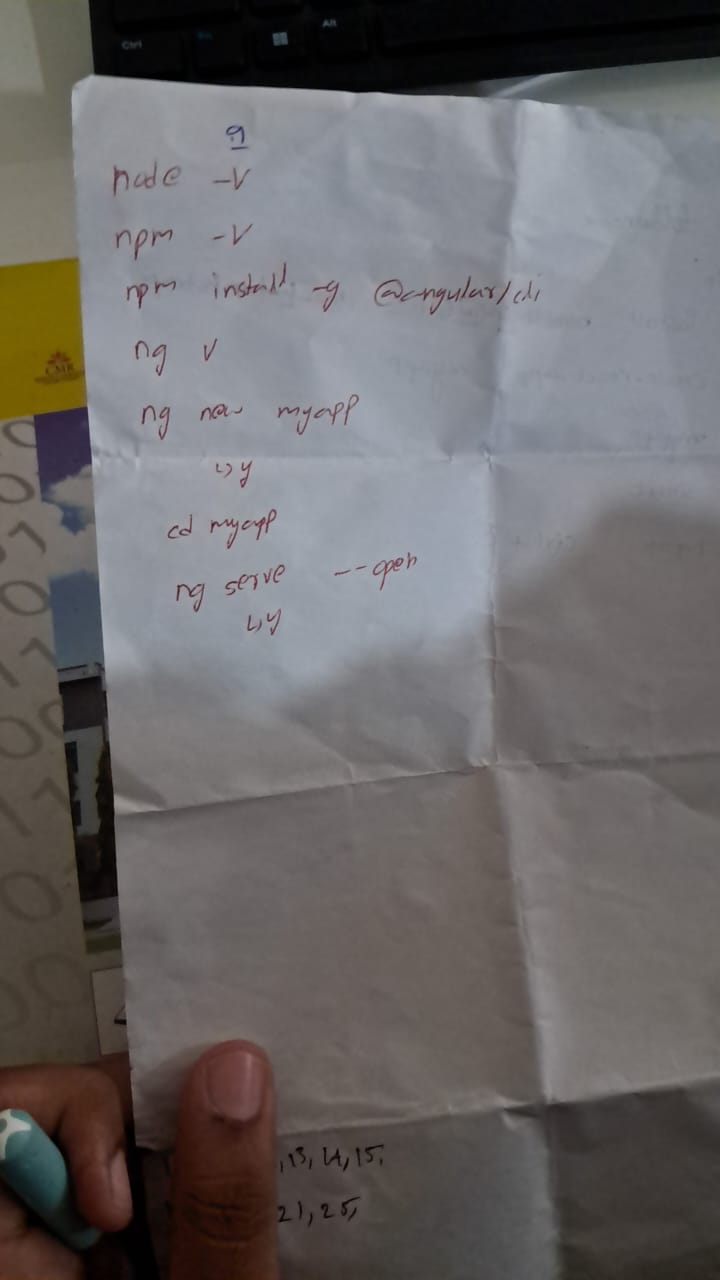 Ctrl
Alt
9
node -v
npm -v
npm install -g @angular/cli
ng v
CMR
ng new myapp
↳y
cd myapp
ng serve --open
↳y
,13, 14, 15,
21, 25,